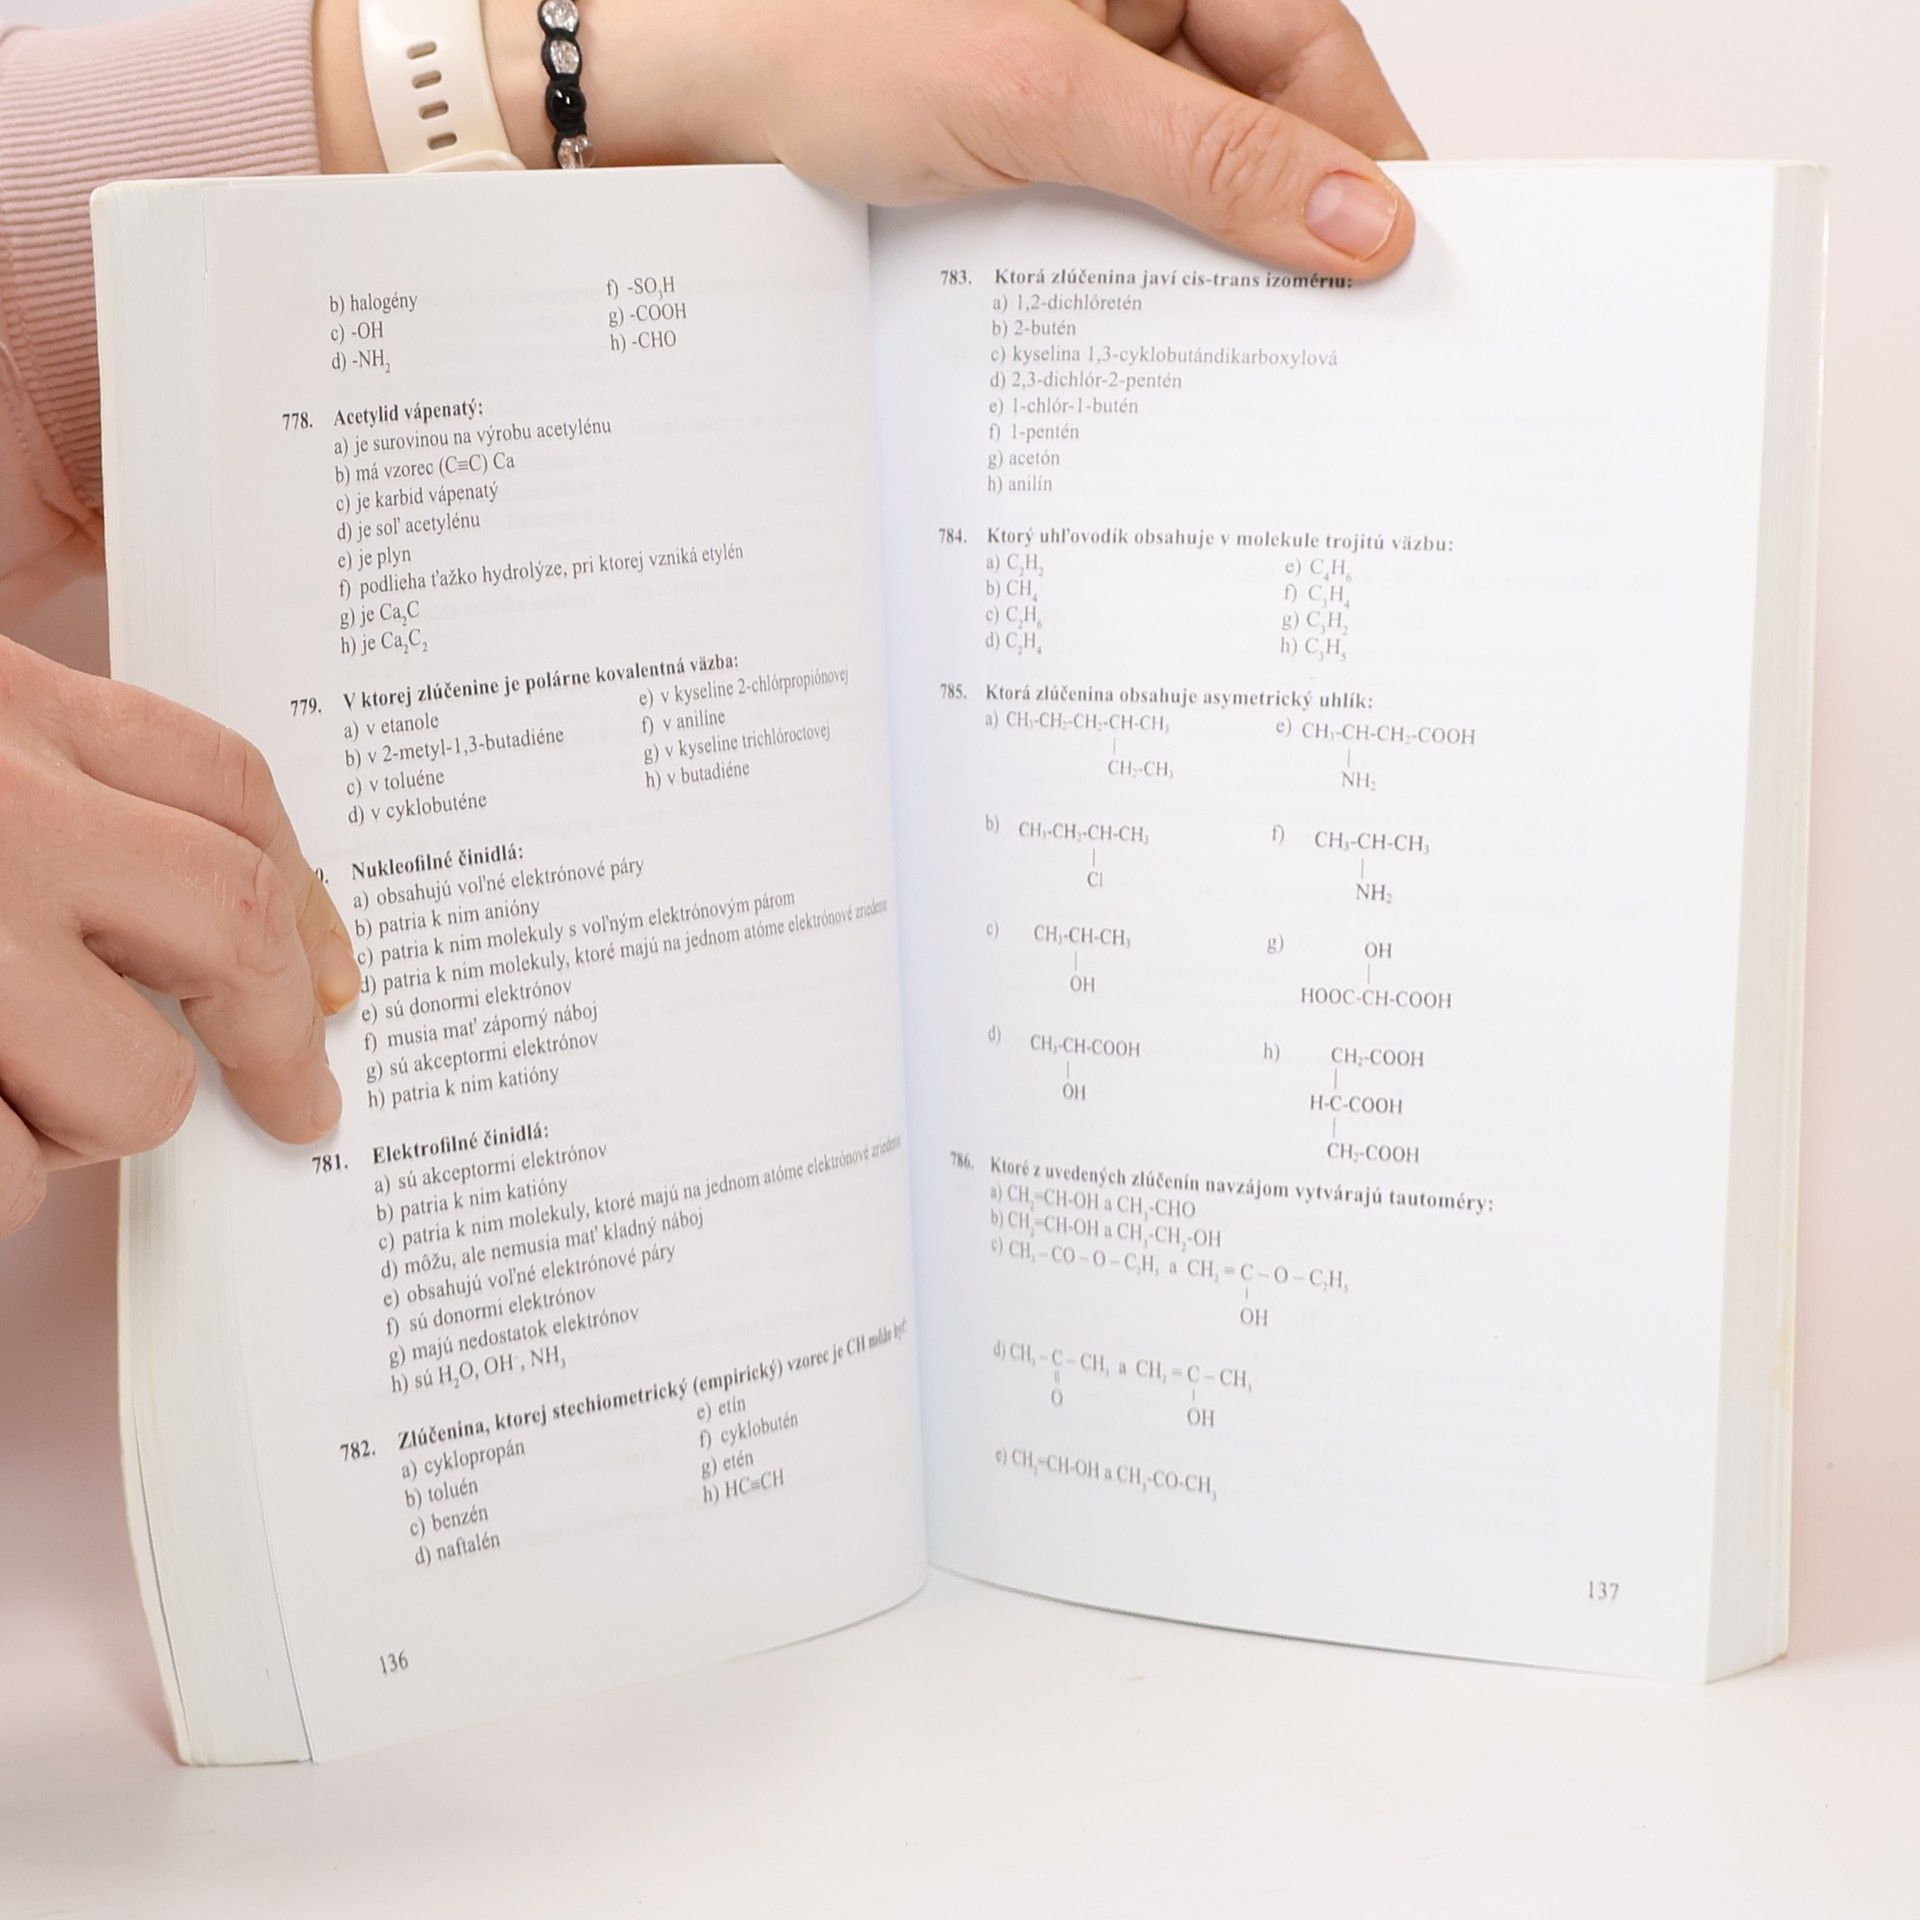 b) halogény
c) -OH
d) -NH₂
f) -SO₃H
g) -COOH
h) -CHO
778. Acetylid vápenatý:
a) je surovinou na výrobu acetylénu
b) má vzorec (C≡C) Ca
c) je karbid vápenatý
d) je soľ acetylénu
e) je plyn
f) podlieha ťažko hydrolýze, pri ktorej vzniká etylén
g) je Ca₂C
h) je Ca₂C₂
779. V ktorej zlúčenine je polárne kovalentná väzba:
a) v etanole
b) v 2-metyl-1,3-butadiéne
c) v toluéne
d) v cyklobuténe
e) v kyseline 2-chlórpropiónovej
f) v anilíne
g) v kyseline trichlóroctovej
h) v butadiéne
0. Nukleofilné činidlá:
a) obsahujú voľné elektrónové páry
b) patria k nim anióny
c) patria k nim molekuly s voľným elektrónovým párom
d) patria k nim molekuly, ktoré majú na jednom atóme elektrónové zriedenie
e) sú donormi elektrónov
f) musia mať záporný náboj
g) sú akceptormi elektrónov
h) patria k nim katióny
781. Elektrofilné činidlá:
a) sú akceptormi elektrónov
b) patria k nim katióny
c) patria k nim molekuly, ktoré majú na jednom atóme elektrónové zriedenie
d) môžu, ale nemusia mať kladný náboj
e) obsahujú voľné elektrónové páry
f) sú donormi elektrónov
g) majú nedostatok elektrónov
h) sú H₂O, OH⁻, NH₃
782. Zlúčenina, ktorej stechiometrický (empirický) vzorec je CH môže byť:
a) cyklopropán
b) toluén
c) benzén
d) naftalén
e) etín
f) cyklobutén
g) etén
h) HC≡CH
136
783. Ktorá zlúčenina javí cis-trans izomériu:
a) 1,2-dichlóretén
b) 2-butén
c) kyselina 1,3-cyklobutándikarboxylová
d) 2,3-dichlór-2-pentén
e) 1-chlór-1-butén
f) 1-pentén
g) acetón
h) anilín
784. Ktorý uhľovodík obsahuje v molekule trojitú väzbu:
a) C₂H₂
b) CH₄
c) C₂H₆
d) C₂H₄
e) C₄H₆
f) C₃H₄
g) C₃H₂
h) C₃H₅
785. Ktorá zlúčenina obsahuje asymetrický uhlík:
a) CH₃-CH₂-CH₂-CH-CH₃
|
CH₂-CH₃
b) CH₃-CH₂-CH-CH₃
|
Cl
c) CH₃-CH-CH₃
|
OH
d) CH₃-CH-COOH
|
OH
e) CH₃-CH-CH₂-COOH
|
NH₂
f) CH₃-CH-CH₃
|
NH₂
g) OH
|
HOOC-CH-COOH
h) CH₂-COOH
|
H-C-COOH
|
CH₂-COOH
786. Ktoré z uvedených zlúčenín navzájom vytvárajú tautoméry:
a) CH₂=CH-OH a CH₃-CHO
b) CH₂=CH-OH a CH₃-CH₂-OH
c) CH₃ – CO – O – C₂H₅ a CH₂ = C – O – C₂H₅
|
OH
d) CH₃ – C – CH₃ a CH₂ = C – CH₃
|| |
O OH
e) CH₂=CH-OH a CH₃-CO-CH₃
137